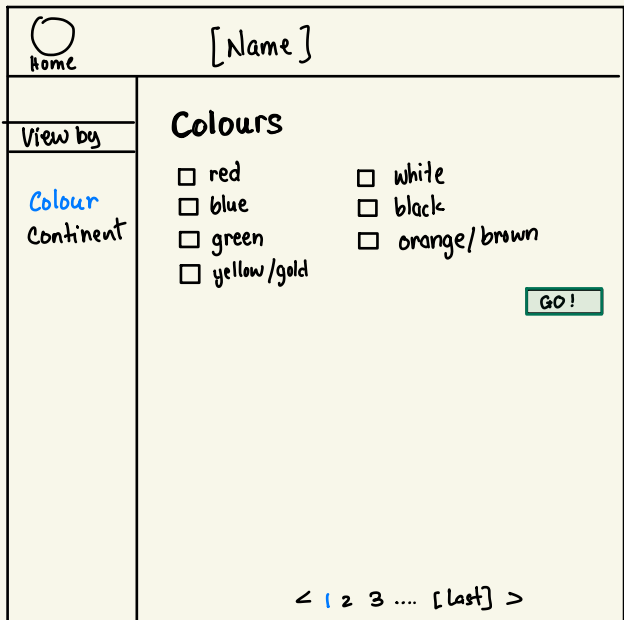 Home
[Name]
View by
Colour
Continent
Colours
red
blue
green
yellow/gold
white
black
orange/brown
GO!
< 1 2 3 .... [Last] >